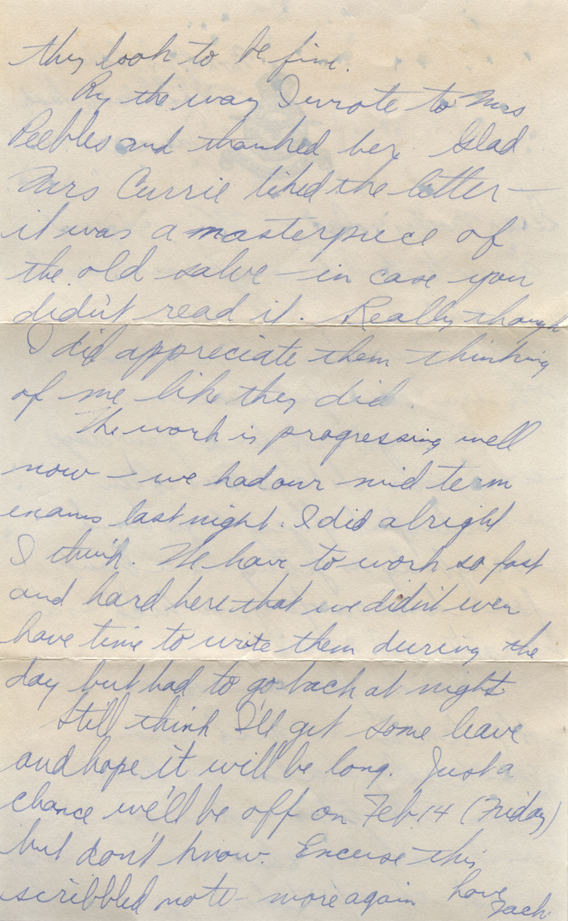 they look to be fine.
By the way I wrote to Mrs
Peebles and thanked her. Glad
Mrs Currie liked the letter —
it was a masterpiece of
the old salve — in case you
didn't read it. Really though
I did appreciate them thinking
of me like they did.
The work is progressing well
now — we had our mid term
exams last night. I did alright
I think. We have to work so fast
and hard here that we didn't even
have time to write them during the
day but had to go back at night.
Still think I'll get some leave
and hope it will be long. Just a
chance we'll be off on Feb 14 (Friday)
but don't know. Excuse this
scribbled note — more again
Love
Jack